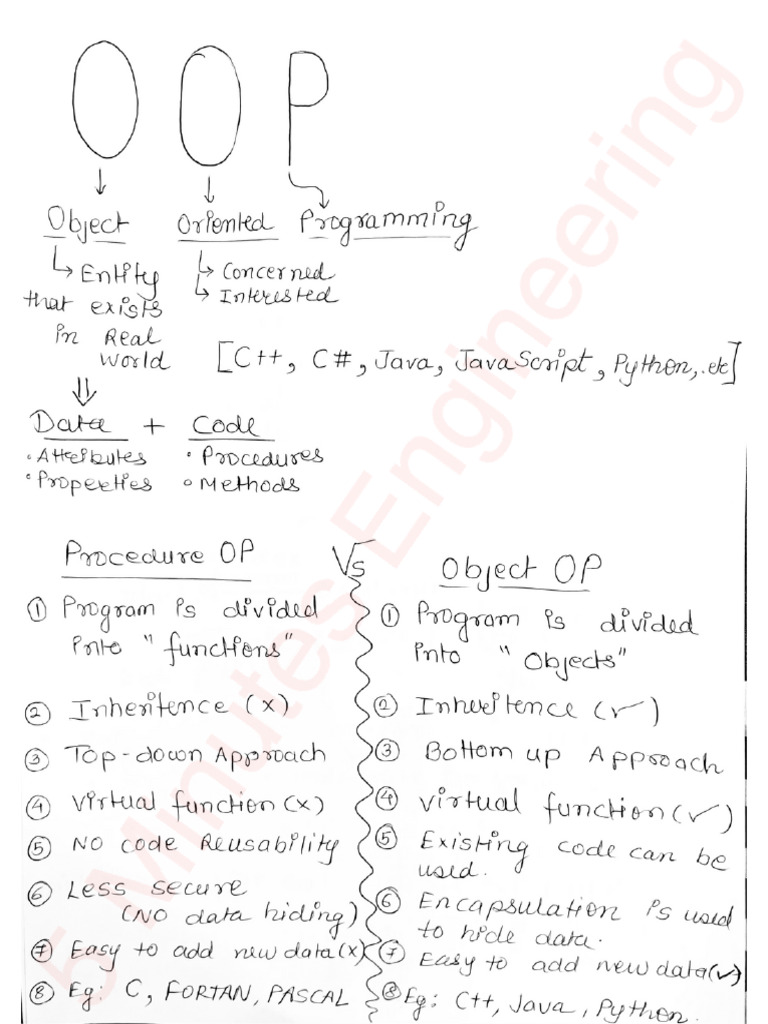 OOP
Object Oriented Programming
↳ Entity
that exists
in Real
world
↳ Concerned
↳ Interested
[C++, C#, Java, JavaScript, Python,.etc]
Data + Code
• Attributes
• Properties
• Procedures
• Methods
Procedure OP
① Program is divided
into "functions"
② Inheritence (x)
③ Top-down Approach
④ Virtual function (x)
⑤ No code Reusability
⑥ Less secure
(No data hiding)
⑦ Easy to add new data(x)
⑧ Eg: C, FORTAN, PASCAL
Vs
Object OP
① Program is divided
into "Objects"
② Inheritence (✓)
③ Bottom up Approach
④ Virtual function (✓)
⑤ Existing code can be
used.
⑥ Encapsulation is used
to hide data.
⑦ Easy to add new data(✓)
⑧ Eg: C++, Java, Python.
5 Minutes Engineering